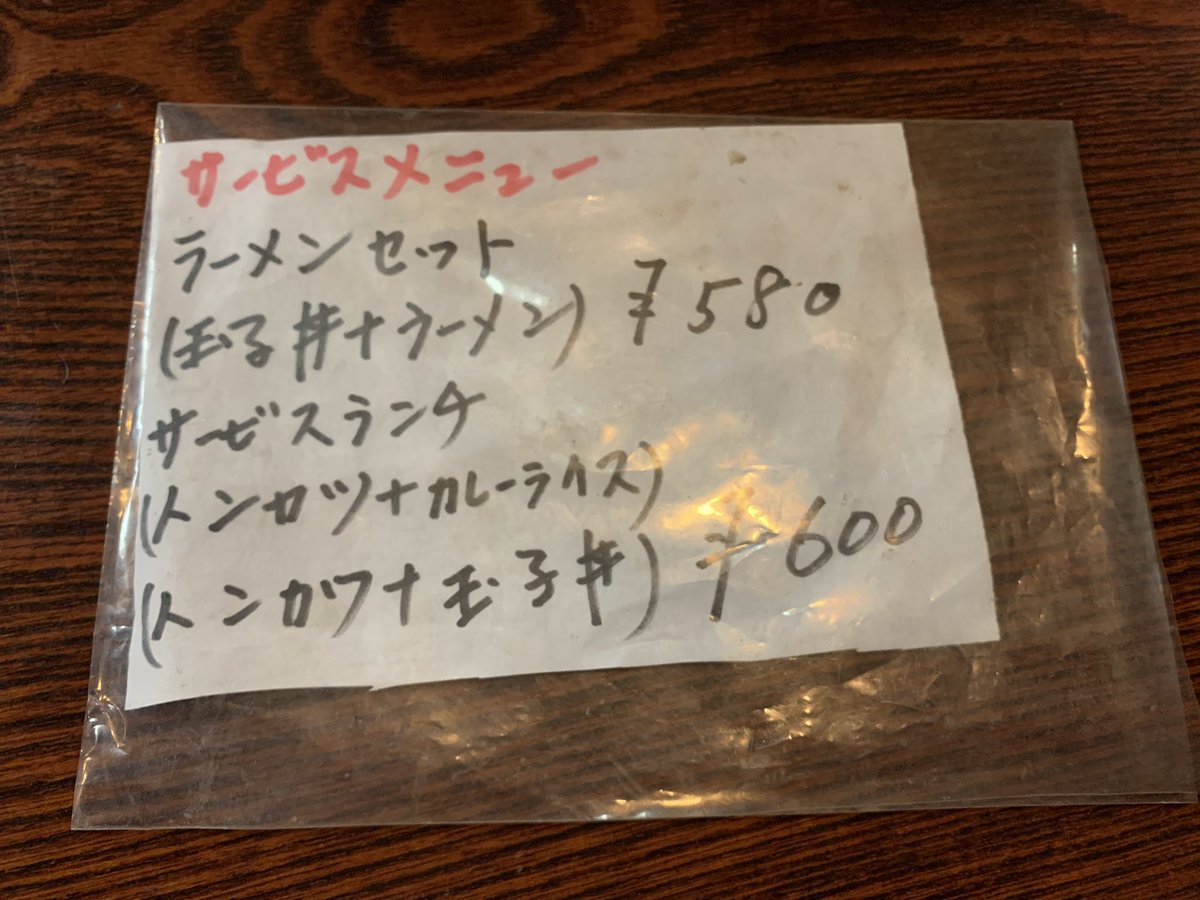 サービスメニュー
ラーメンセット
(玉子丼+ラーメン) ¥580
サービスランチ
(トンカツ+カレーライス)
(トンカツ+玉子丼) ¥600